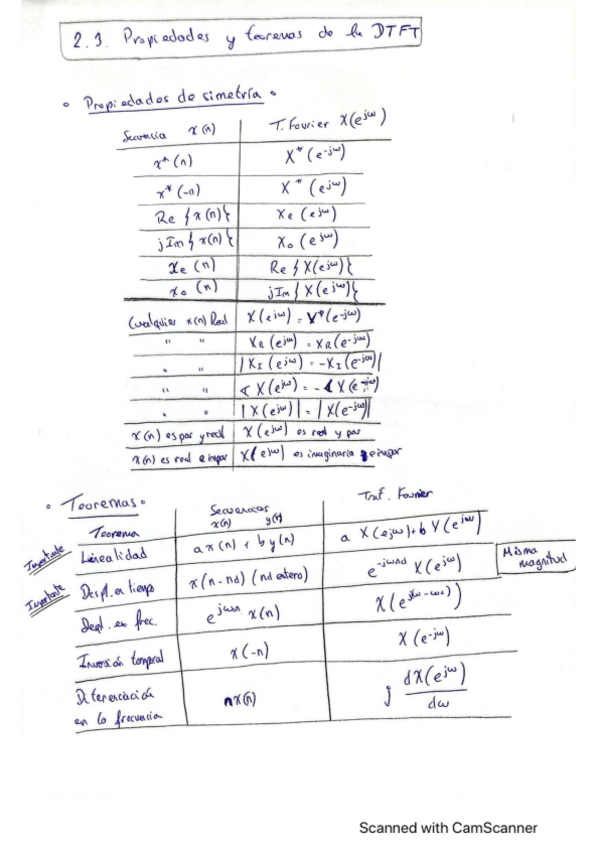 2.3. Propiedades y teoremas de la DTFT
• Propiedades de simetría •
Secuencia x(n) T. Fourier X(e^jω)
x*(n) X*(e^-jω)
x*(-n) X*(e^jω)
Re {x(n)} Xe(e^jω)
jIm {x(n)} Xo(e^jω)
xe(n) Re {X(e^jω)}
xo(n) jIm {X(e^jω)}
Cualquier x(n) Real X(e^jω) = X*(e^-jω)
" " XR(e^jω) = XR(e^-jω)
" " |XI(e^jω) = -XI(e^-jω)|
" " ∢ X(e^jω) = -∢ X(e^-jω)
" " |X(e^jω)| = |X(e^-jω)|
x(n) es par y real X(e^jω) es real y par
x(n) es real e impar X(e^jω) es imaginaria e impar
• Teoremas •
Teorema Secuencias x(n) y(n) Traf. Fourier
Importante Linealidad ax(n) + by(n) a X(e^jω) + b Y(e^jω)
Importante Despl. en tiempo x(n-nd) (nd entero) e^-jωnd X(e^jω) Misma magnitud
Depl. en frec. e^jω0n x(n) X(e^jω-ω0)
Inversión temporal x(-n) X(e^-jω)
Diferenciación en la frecuencia nx(n) j dX(e^jω)/dω
Scanned with CamScanner